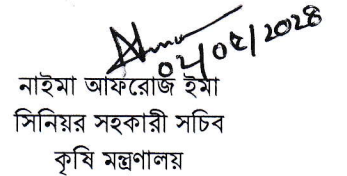 ০২/০৫/২০২৪
নাইমা আফরোজ ইমা
সিনিয়র সহকারী সচিব
কৃষি মন্ত্রণালয়